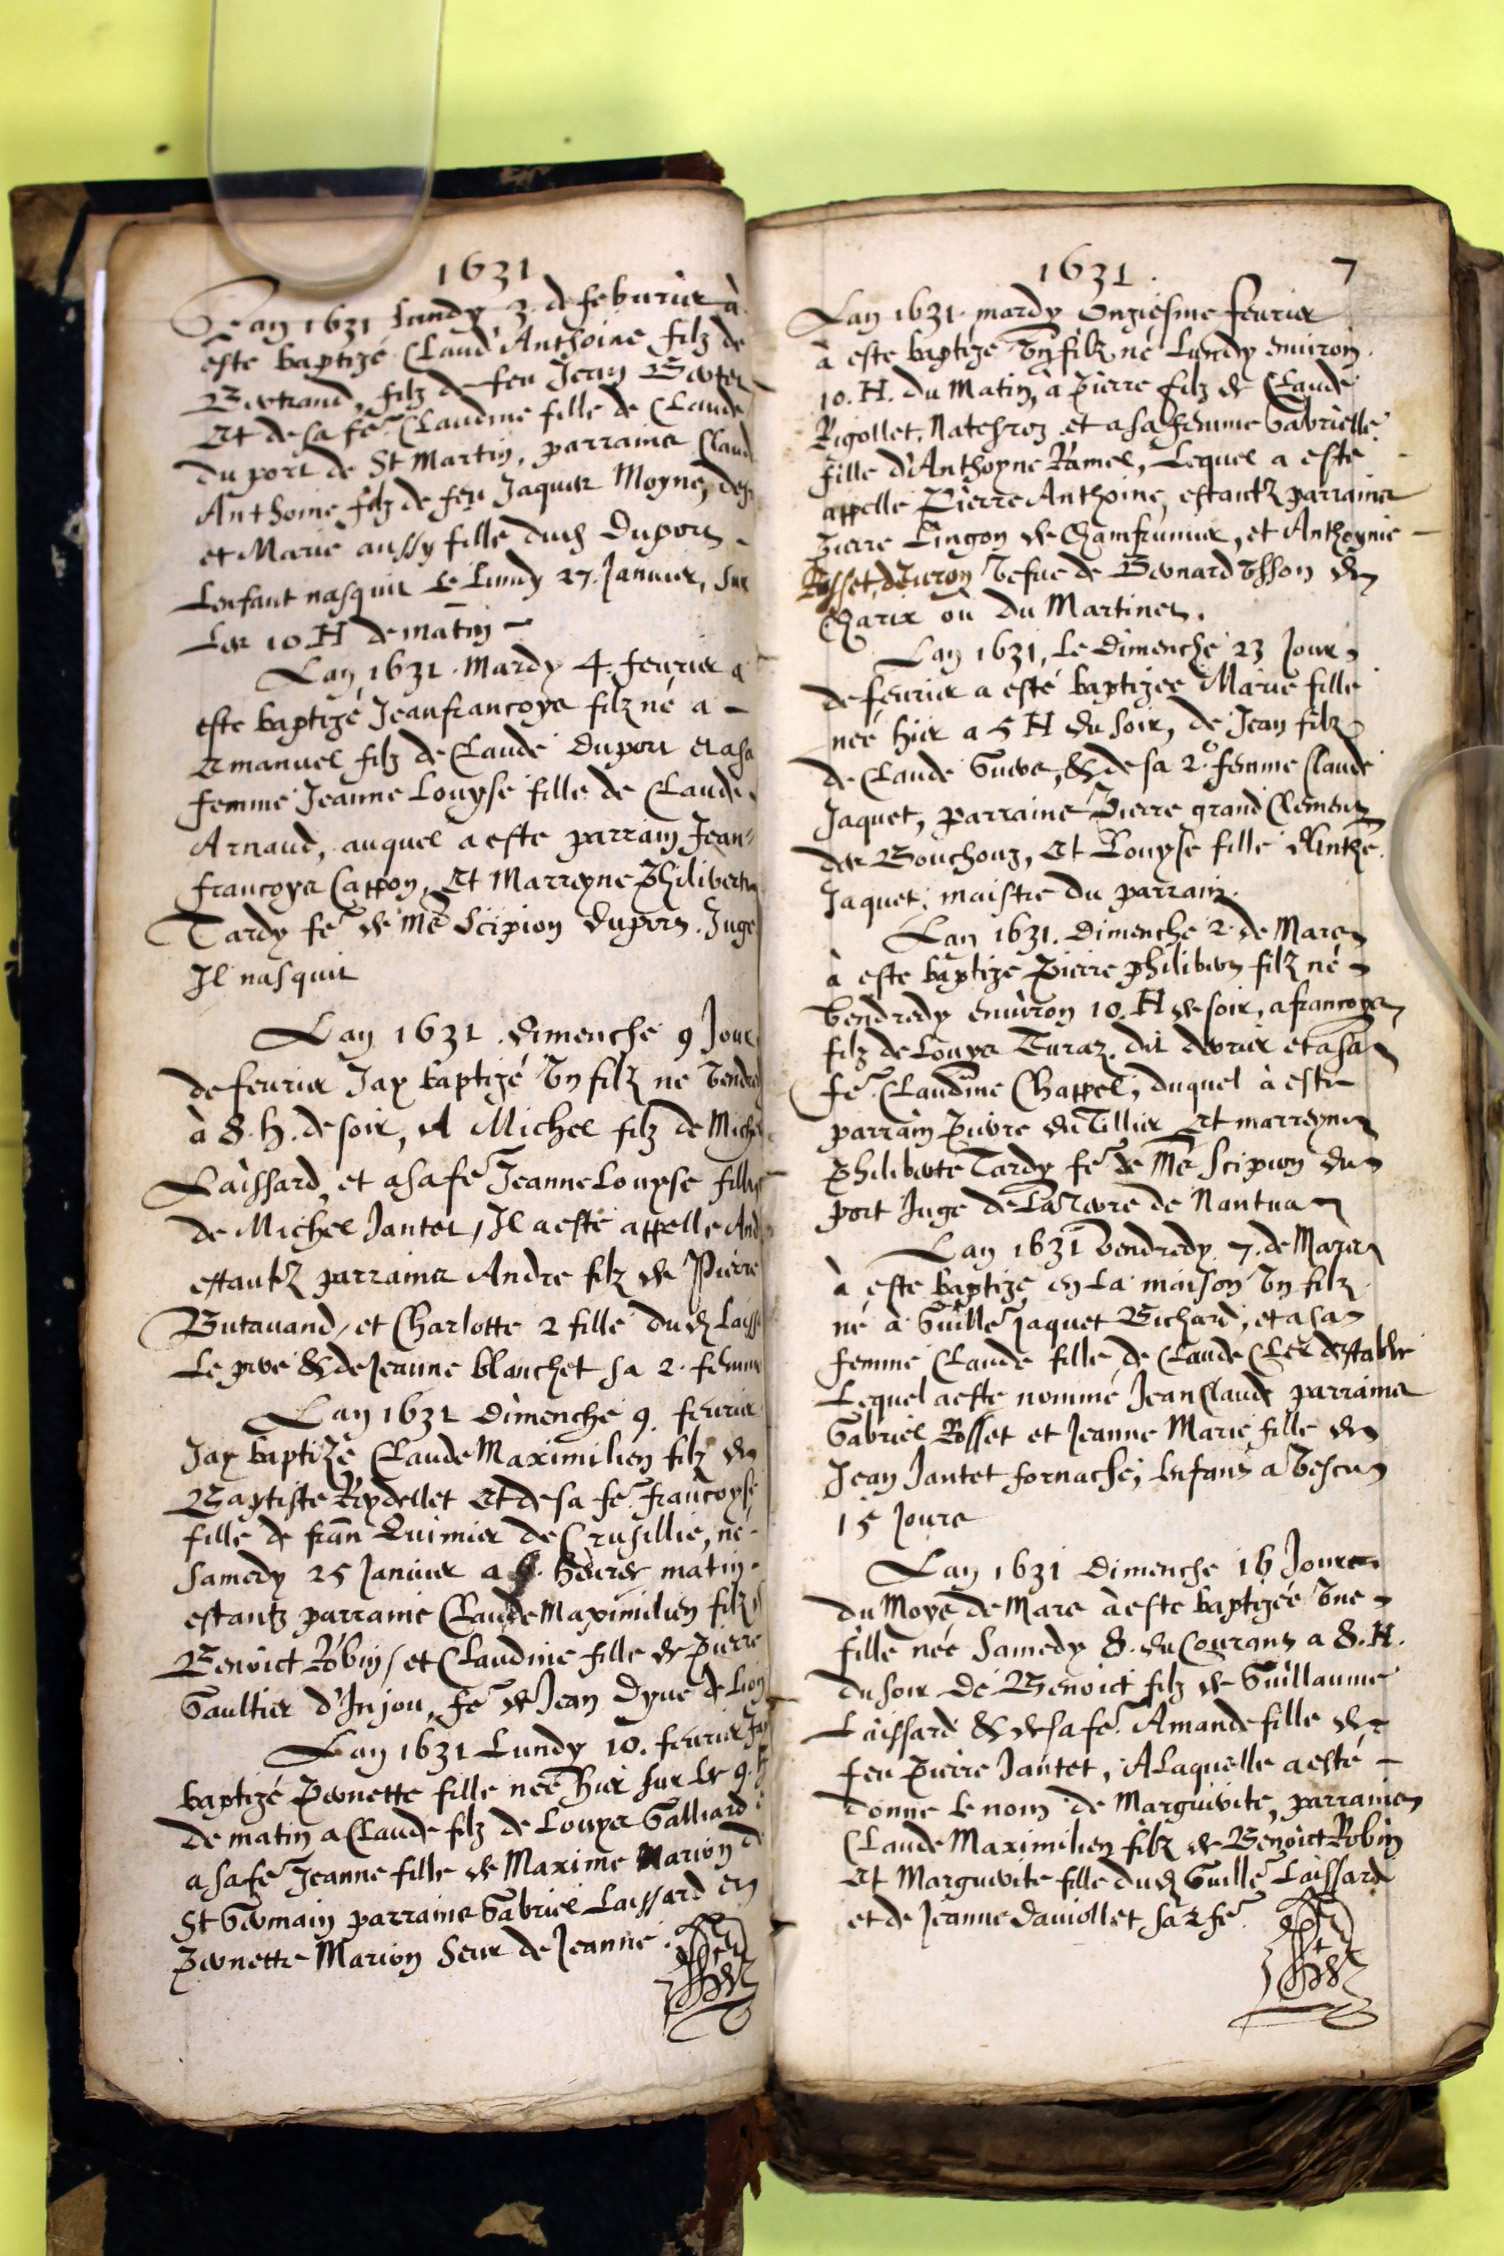 1631
Lan 1631 Lundy 3. de feburier à
este baptizé Claud' Anthoine filz de
Bertrand, filz de feu Jean
Et de sa fe Claudine fille de Claude
du port de St Martin, parraine Claud
Anthoine filz de feu Jaques Moyne,
et Marie aussy fille dud Duport
Lenfant nasquit Le Lundy 27. Januier, sur
Les 10 H de matin
Lan 1631. Mardy 4. feurier a
este baptizé Jeanfrancoys filz né a
Emanuel filz de Claude Duport et a sa
femme Jeanne Louyse fille de Claude
Arnaud, auquel a este parrain Jean
francoys Cappon, Et Marreyne Philiberte
Tardy fe de Me Scipion duport. Juge
Il nasquit
Lan 1631. dimenche 9 Jour
de feurier Jay baptizé Vn filz ne Vendre
à 8. h. de soir, A Michel filz de Michel
Laissard, et a sa fe Jeanne Louyse fille
de Michel Jantet, Il a este appelle And
estantz parrains Andre filz de Pierre
Butauand, et Charlotte 2 fille dud Laiss
Le pere & de Jeanne blanchet sa 2. femme
Lan 1631 Dimenche 9. feurier
Jay baptizé Claude Maximilien filz de
Baptiste Reydellet Et de sa fe francoyse
fille de fran Quimier de Crusillie, né
Samedy 25 Januier a 6. heures matin
estantz parrains Claude Maximilien filz
Benoict Robin, et Claudine fille de Pierre
Gaultier d'Injou, fe de Jean Dyue de Lion
Lan 1631 Lundy 10. feurier Jay
baptizé Pernette fille neé hier sur les 9. h
de matin a Claude filz de Louys Galliard
a sa fe Jeanne fille de Maxime Marion de
St Germain parrains Gabriel Laissard et
Pernette Marion Seur de Jeanne.
1631. 7
Lan 1631. mardy Onziesme feurier
à este baptizé Vn filz né Lundy enuiron
10. H. du Matin, à Pierre filz de Claude
Rigollet, et a sa femme Gabrielle
fille d'Anthoyne Ramel, Lequel a este
appelle Pierre Anthoine, estantz parrains
Pierre Lingon de Chamfrumier, et Anthoynie
Rosset, Vefue de Bernard de
Charix ou du Martinet.
Lan 1631, Le Dimenche 23 Jour
de feurier a esté baptizee Marie fille
neé hier a 5 H du soir, de Jean filz
de Claude, & de sa 2e femme Claude
Jaquet, parraine Pierre grand Clement
des Bouchoux, Et Louyse fille d'Anthe
Jaquet, maistre du parrain.
Lan 1631. Dimenche 2 de Mars
à este baptizé Pierre philibert filz né
Vendredy enuiron 10. H de soir, a francoys
filz de Louys Turaz. dit et a sa
fe. Claudine Chappel, duquel à este
parrain Pierre du Tillier Et marreyne
Philiberte Tardy fe de Me Scipion du
port Juge de La Terre de Nantua
Lan 1631 Vendredy. 7. de Mars
à este baptizé en La maison Vn filz
né à Guille Jaquet Bichard, et a sa
femme Claude fille de Claude
Lequel a este nommé Jean Claude parrains
Gabriel Rosset et Jeanne Marie fille de
Jean Jantet fornache, lenfant a Vescu
15 Jours
Lan 1631 Dimenche 16 Jour
du Moys de Mars à este baptizée Vne
fille née Samedy 8. du Courant a 8. H.
du soir De Benoict filz de Guillaume
Laissard & de sa fe. Amande fille de
feu Pierre Jantet, A Laquelle a esté
donné le nom de Marguerite, parrains
Claude Maximilien filz de Benoict Robin
Et Marguerite fille dud Guille Laissard
et de Jeanne Dauiollet sa 2 fe.